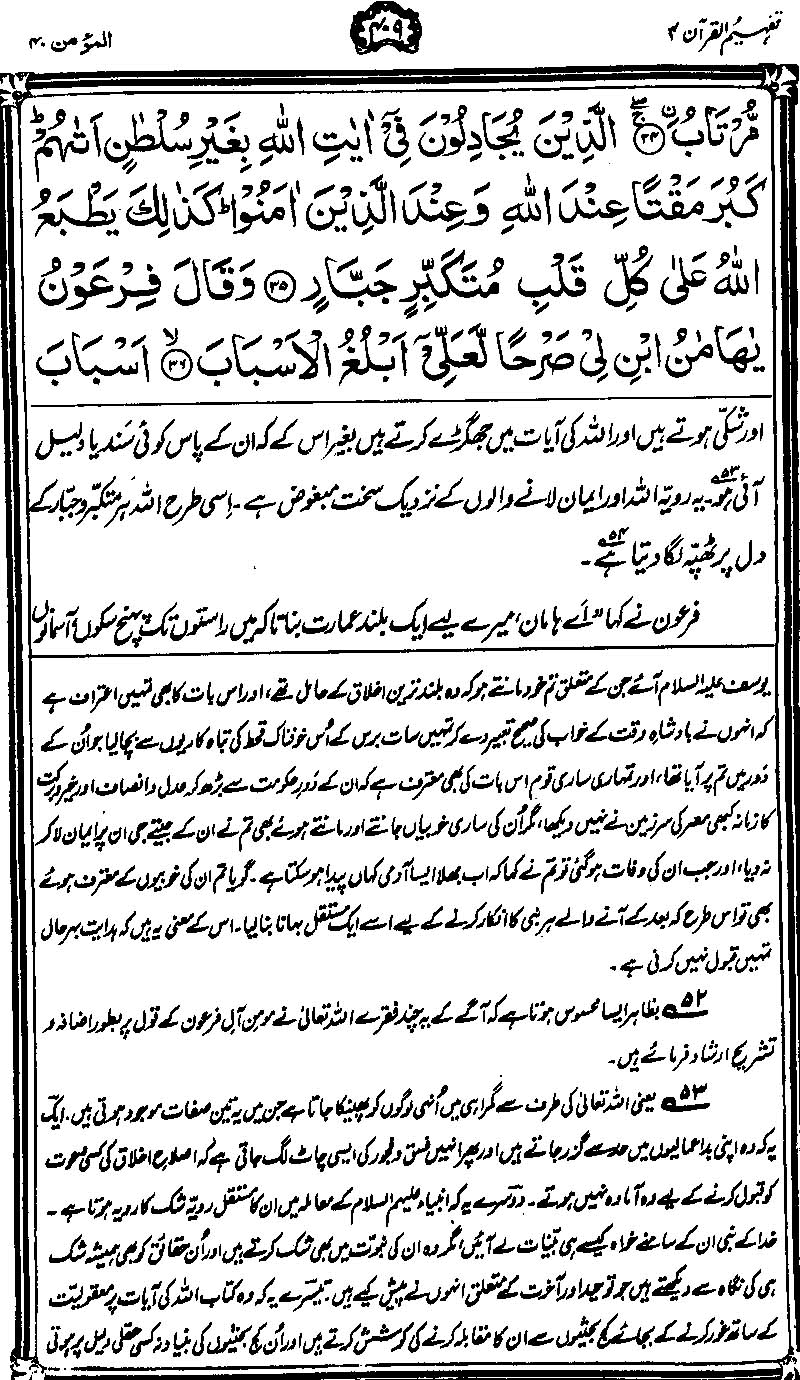 تفہیم القرآن ۴
۴۰۹
المؤمن ۴۰
مُّرْتَابُ ۨ ﴿۳۴﴾ الَّذِيْنَ يُجَادِلُوْنَ فِيْۤ اٰيٰتِ اللّٰهِ بِغَيْرِ سُلْطٰنٍ اَتٰىهُمْ ؕ
كَبُرَ مَقْتًا عِنْدَ اللّٰهِ وَعِنْدَ الَّذِيْنَ اٰمَنُوْا ؕ كَذٰلِكَ يَطْبَعُ
اللّٰهُ عَلٰى كُلِّ قَلْبِ مُتَكَبِّرٍ جَبَّارٍ ﴿۳۵﴾ وَقَالَ فِرْعَوْنُ
يٰهَامٰنُ ابْنِ لِيْ صَرْحًا لَّعَلِّيْۤ اَبْلُغُ الْاَسْبَابَ ﴿۳۶﴾ۙ اَسْبَابَ
اور شکّی ہوتے ہیں اور اللہ کی آیات میں جھگڑے کرتے ہیں بغیر اس کے کہ ان کے پاس کوئی سَند یا دلیل
آئی ہو۵۳۔ یہ رویّہ اللہ اور ایمان لانے والوں کے نزدیک سخت مبغوض ہے۔ اِسی طرح اللہ ہر متکبّر و جبّار کے
دل پر ٹھپّہ لگا دیتا ہے۵۴۔
فرعون نے کہا ”اَے ہامان، میرے لیے ایک بلند عمارت بنا تاکہ میں راستوں تک پہنچ سکوں، آسمانوں
یوسف علیہ السلام آئے جن کے متعلق تم خود مانتے ہو کہ وہ بلند ترین اخلاق کے حامل تھے، اور اس بات کا بھی تمہیں اعتراف ہے
کہ انہوں نے بادشاہِ وقت کے خواب کی صحیح تعبیر دے کر تمہیں سات برس کے اُس خوفناک قحط کی تباہ کاریوں سے بچا لیا جو اُن کے
دَور میں تم پر آیا تھا، اور تمہاری ساری قوم اس بات کی بھی معترف ہے کہ ان کے دَورِ حکومت سے بڑھ کر عدل و انصاف اور خیر و برکت
کا زمانہ کبھی مصر کی سرزمین نے نہیں دیکھا، مگر اُن کی ساری خوبیاں جانتے اور مانتے ہوئے بھی تم نے ان کے جیتے جی ان پر ایمان لا کر
نہ دیا، اور جب ان کی وفات ہو گئی تو تم نے کہا کہ اب بھلا ایسا آدمی کہاں پیدا ہو سکتا ہے۔ گویا تم ان کی خوبیوں کے معترف ہوئے
بھی تو اس طرح کہ بعد کے آنے والے ہر نبی کا انکار کرنے کے لیے اسے ایک مستقل بہانا بنا لیا۔ اس کے معنی یہ ہیں کہ ہدایت بہرحال
تمہیں قبول نہیں کرنی ہے۔
۵۲ بظاہر ایسا محسوس ہوتا ہے کہ آگے کے یہ چند فقرے اللہ تعالیٰ نے مومنِ آلِ فرعون کے قول پر بطور اضافہ و
تشریح ارشاد فرمائے ہیں۔
۵۳ یعنی اللہ تعالیٰ کی طرف سے گمراہی میں اُنہی لوگوں کو پھینکا جاتا ہے جن میں یہ تین صفات موجود ہوتی ہیں۔ ایک
یہ کہ وہ اپنی بداعمالیوں میں حد سے گزر جاتے ہیں اور پھر انہیں فسق و فجور کی ایسی چاٹ لگ جاتی ہے کہ اصلاحِ اخلاق کی کسی دعوت
کو قبول کرنے کے لیے وہ آمادہ نہیں ہوتے۔ دوسرے یہ کہ انبیاء علیہم السلام کے معاملہ میں ان کا مستقل رویّہ شک کا رویہ ہوتا ہے۔
خدا کے نبی ان کے سامنے خواہ کیسے ہی بیّنات لے آئیں، مگر وہ ان کی نبوت میں بھی شک کرتے ہیں اور اُن حقائق کو بھی ہمیشہ شک
ہی کی نگاہ سے دیکھتے ہیں جو توحید اور آخرت کے متعلق انہوں نے پیش کیے ہیں۔ تیسرے یہ کہ وہ کتاب اللہ کی آیات پر معقولیت
کے ساتھ غور کرنے کے بجائے کج بحثیوں سے ان کا مقابلہ کرنے کی کوشش کرتے ہیں اور اُن کج بحثیوں کی بنیاد نہ کسی عقلی دلیل پر ہوتی